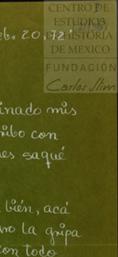 CENTRO DE
ESTUDIOS
DE HISTORIA
DE MEXICO
eb. 20, 72.
FUNDACIÓN
Carlos Slim
inado mis
ribo con
es saqué
bién, acá
no la gripa
con todo